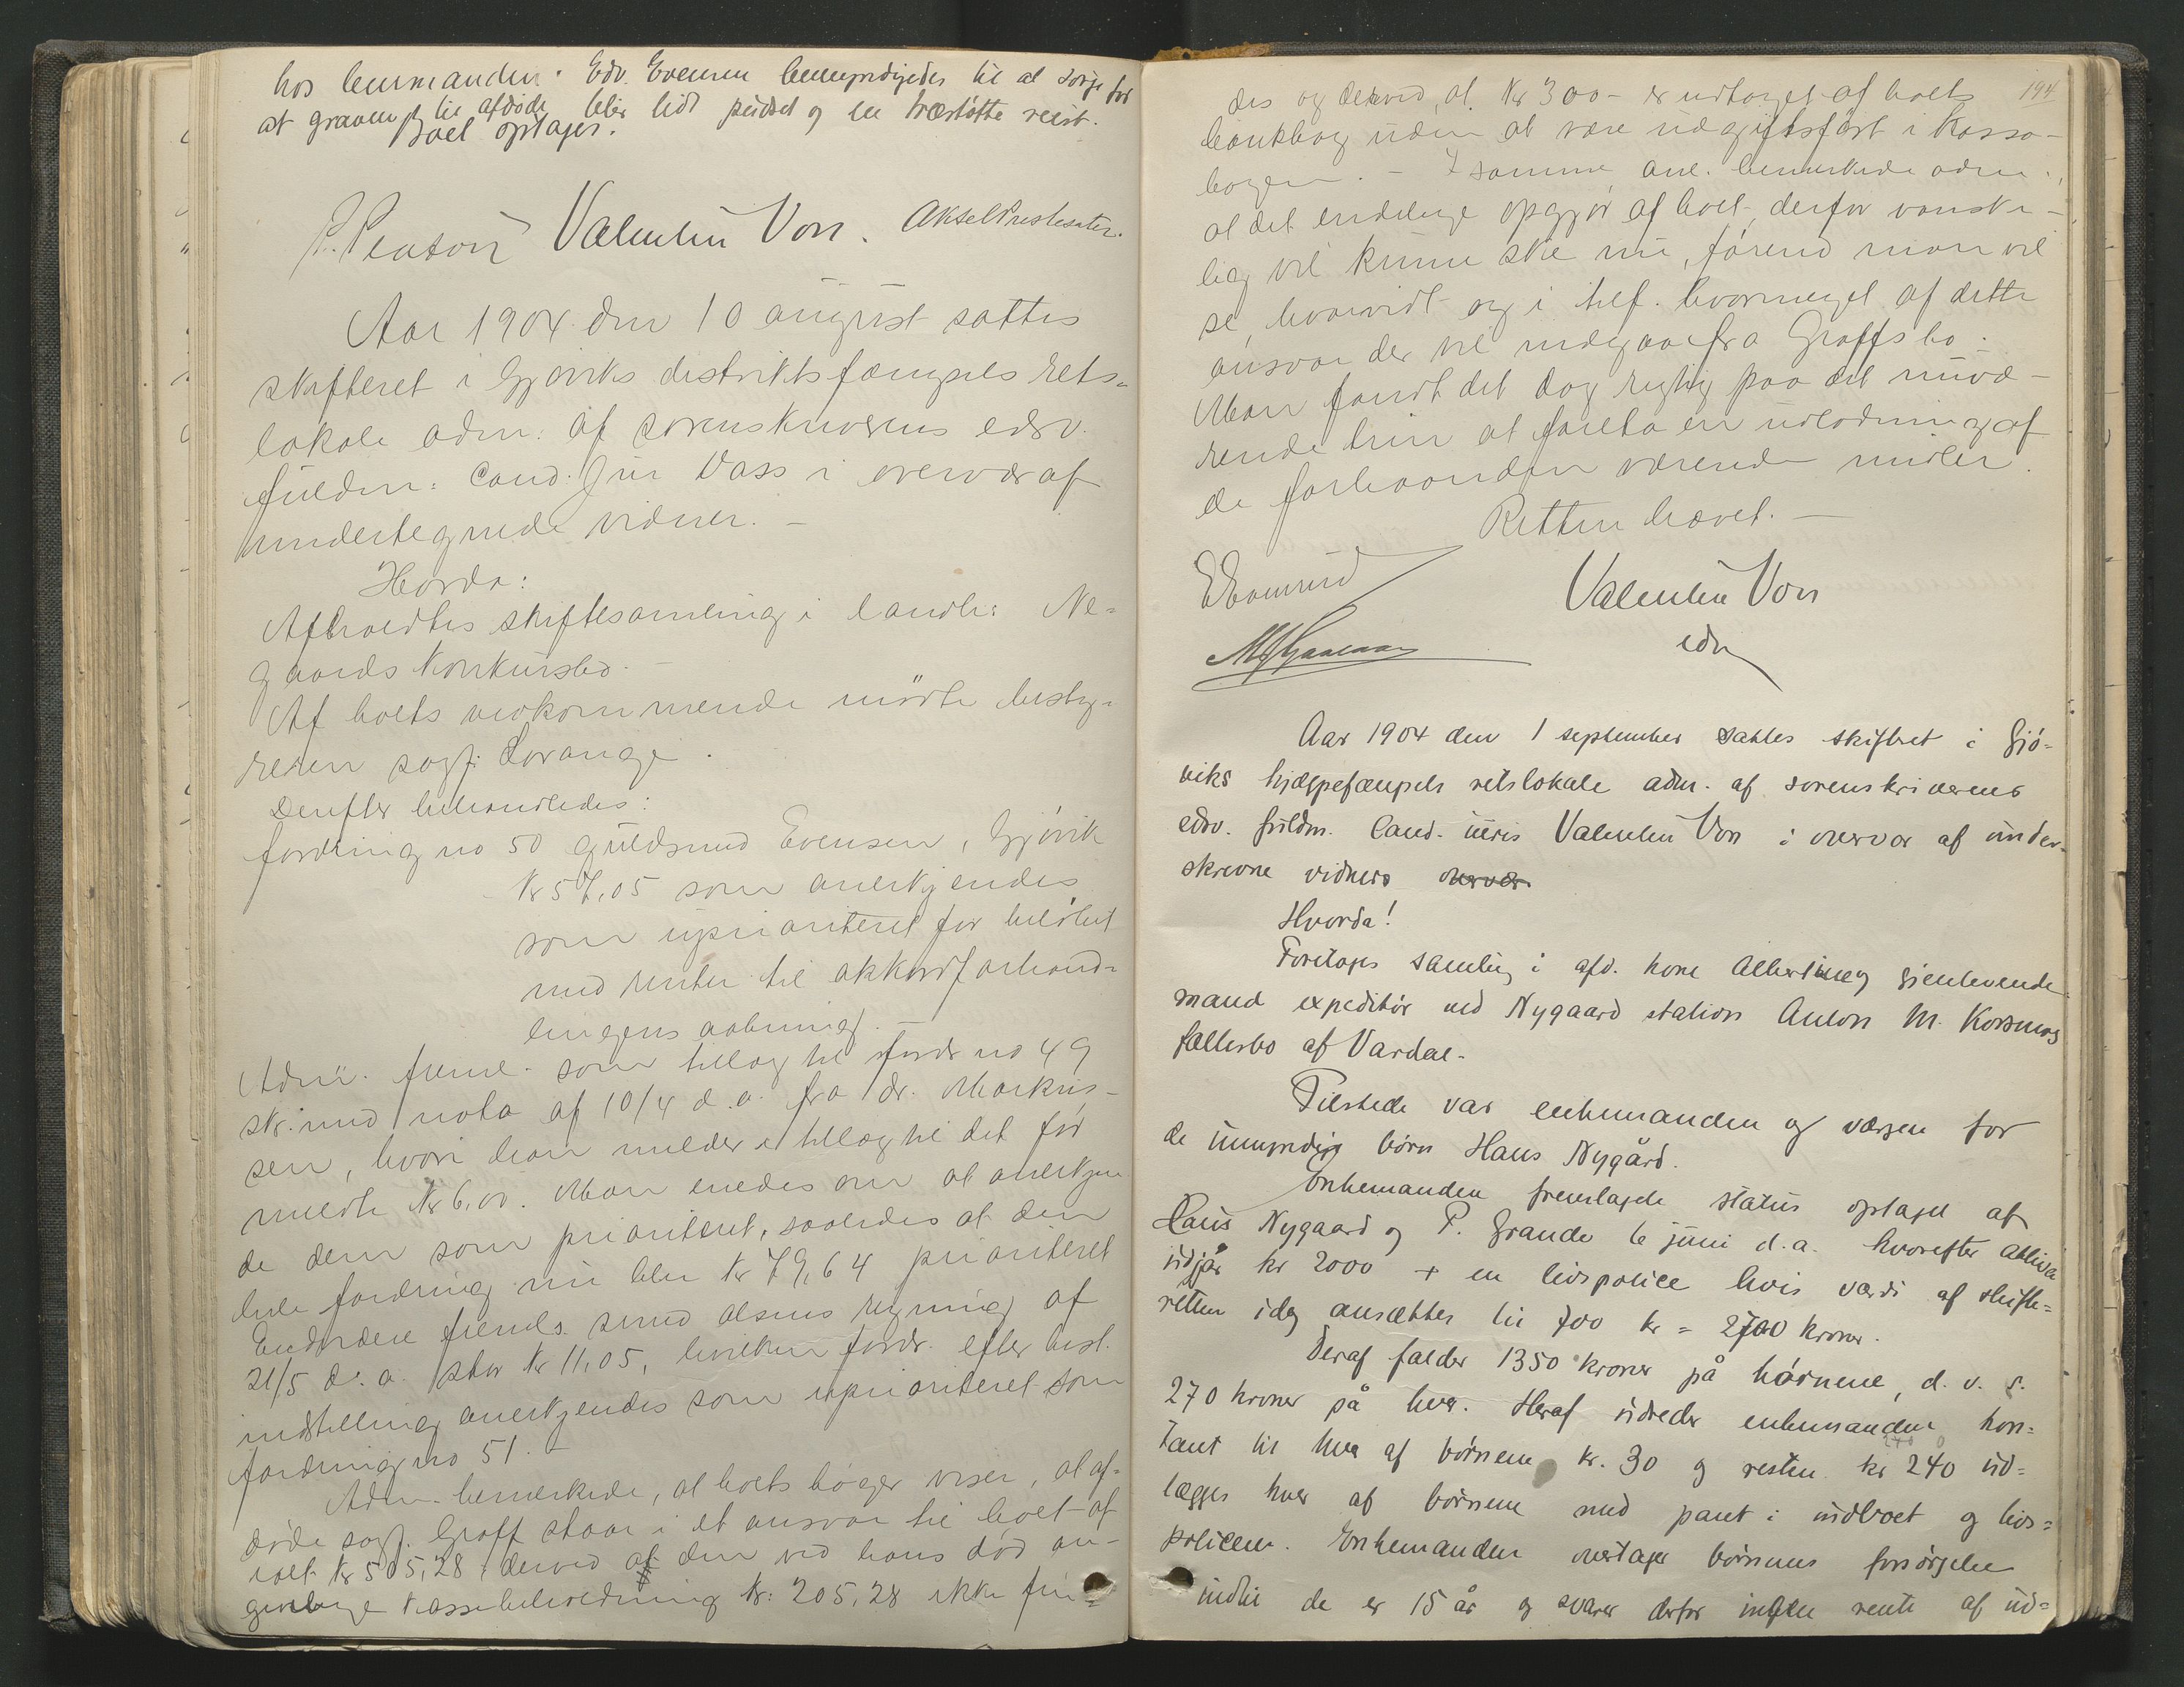 hos lensmanden. Edv. Evensen bemyndigedes til at sørge for
at graven til afdøde blir lidt pudset og en træstøtte reist.
Boet optages.
Valentin Voss. Aksel Prestesæter.
Aar 1904 den 10 august sattes
skifteret i Gjøviks distriktsfængsels rets-
lokale adm: af sorenskriverens edsv.
fuldm: Cand. Jur Voss i overvær af
undertegnede vidner. –
Hvorda:
Afholdtes skiftesamling i landh: Ne-
gaards konkursbo. –
Af boets vedkommende mødte besty-
reren sagf. Lorange.
Derefter behandledes:
fordring no 50 guldsmed Evensen, Gjøvik
Kr 57,05 som anerkjendes
som uprioriteret for beløbet
med renter til akkordforhand-
lingens aabning. –
Adm. freml. som tillæg til fordr no 49
skr. med nota af 10/4 d.a. fra dr. Markus-
sen, hvori han melder et tillæg til det før
meldte Kr 6,00. Man enedes om at anerkjen
de dem som prioriteret, saaledes at den
hele fordring nu blir Kr 79,64 prioriteret
Endvidere fremls. smed Olsens regning af
21/5 d.a. stor Kr 11,05, hvilken fordr. efter best.
indstilling anerkjendes som uprioriteret som
fordring no 51. –
Adm. bemerkede, at boets bøger viser, at af-
døde sagf. Graff staar i et ansvar til boet af
ialt Kr 505,28, derved at den ved hans død an-
givelige kassebeholdning Kr: 205,28 ikke fin-
194
des og derved, at Kr 300 – er udtaget af boets
bankbog uden at være udgiftsført i Kassa-
bogen. – I samme anl. bemerkede adm.,
at det endelige opgjør af boet, derfor vanske-
lig vil kunne ske nu, førend man vil
se, hvorvidt og i tilf. hvormeget af dette
ansvar der vil indgaa fra Graffs bo.
Man fandt det dog rigtig paa det nuvæ-
rende trin at foreta en udlodning af
de forhaanden værende midler.
Retten hævet. –
Valentin Voss
edsv
Aar 1904 den 1 september sattes skiftret i Gjø-
viks hjælpefængsels retslokale adm. af sorenskriverens
edsv. fuldm. Cand. iuris Valentin Voss i overvær af under-
skrevne vidners overvær
Hvorda!
Foretages samling i afd. kone Albertine og gjenlevende
mand expeditør ved Nygaard station Anton M. Korsmos
fællesbo af Vardal.
Tilstede var enkemanden og værgen for
de umyndige børn Hans Nygård.
Enkemanden fremlagde status optaget af
Hans Nygaard og P. Grande 6 juni d.a. hvorefter aktiva
udgjør kr 2000 + en livspolice hvis værdi af skifte-
retten idag ansættes til 700 kr = 2700 kroner.
Deraf falder 1350 kroner på børnene, d. v. s.
270 kroner på hver. Heraf udreder enkemanden kon-
tant til hver af børnene kr. 30 og resten kr 240 ud-
lægges hver af børnene med pant i indboet og livs-
policen. Enkemanden overtager børnenes forsørgelse
indtil de er 15 år og svarer derfor ingen rente af ud-